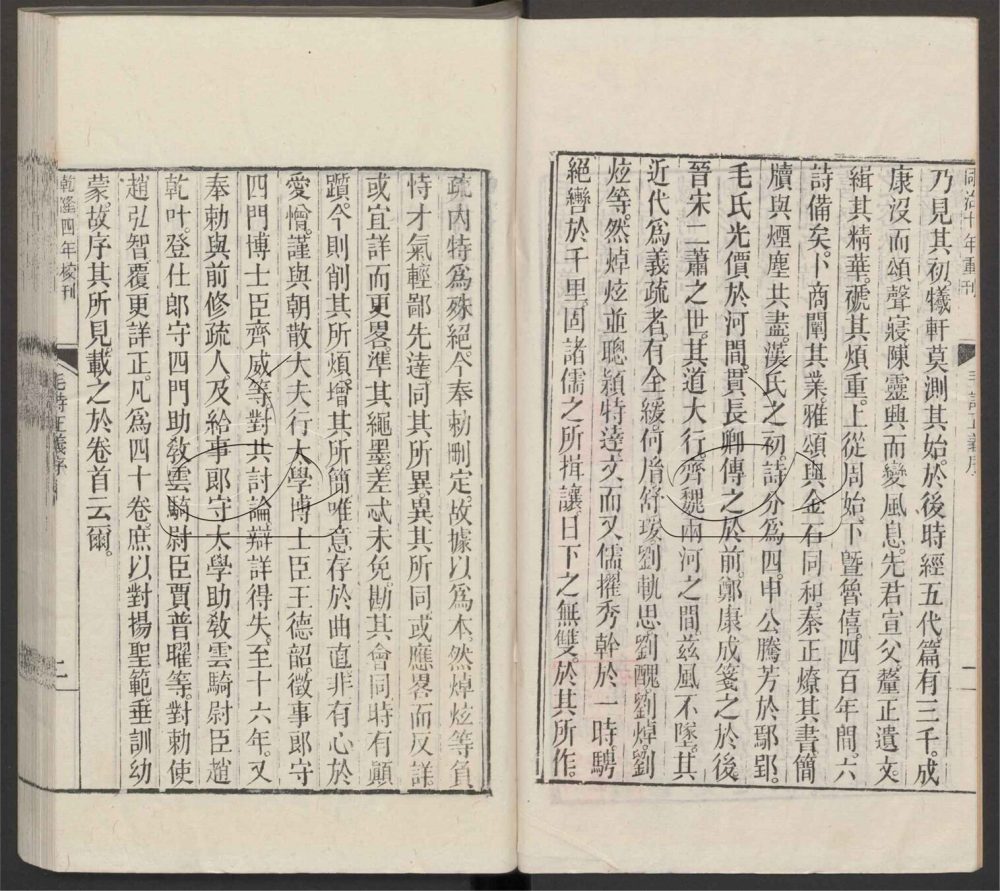 同治十年重刊
毛詩正義序
乃見其初犧軒莫測其始於後時經五代篇有三千成
康沒而頌聲寢陳靈興而變風息先君宣父釐正遺文
緝其精華褫其煩重上從周始下曁魯僖四百年間六
詩備矣卜商闡其業雅頌與金石同和秦正燎其書簡
牘與煙塵共盡漢氏之初詩分爲四申公騰芳於鄢郢
毛氏光價於河間貫長卿傳之於前鄭康成箋之於後
晉宋二蕭之世其道大行齊魏兩河之間茲風不墜其
近代爲義疏者有全緩何胤舒瑗劉軌思劉醜劉焯劉
炫等然焯炫並聰穎特達文而又儒擢秀幹於一時騁
絕轡於千里固諸儒之所揖讓日下之無雙於其所作
疏內特爲殊絕今奉勅刪定故據以爲本然焯炫等負
恃才氣輕鄙先達同其所異異其所同或應畧而反詳
或宜詳而更畧準其繩墨差忒未免勘其會同時有顚
躓今則削其所煩增其所簡唯意存於曲直非有心於
愛憎謹與朝散大夫行太學博士臣王德韶徵事郎守
四門博士臣齊威等對共討論辯詳得失至十六年又
奉勅與前修疏人及給事郎守太學助敎雲騎尉臣趙
乾叶登仕郎守四門助敎雲騎尉臣賈普曜等對勅使
趙弘智覆更詳正凡爲四十卷庶以對揚聖範垂訓幼
蒙故序其所見載之於卷首云爾
乾隆四年校刊
毛詩正義序
二